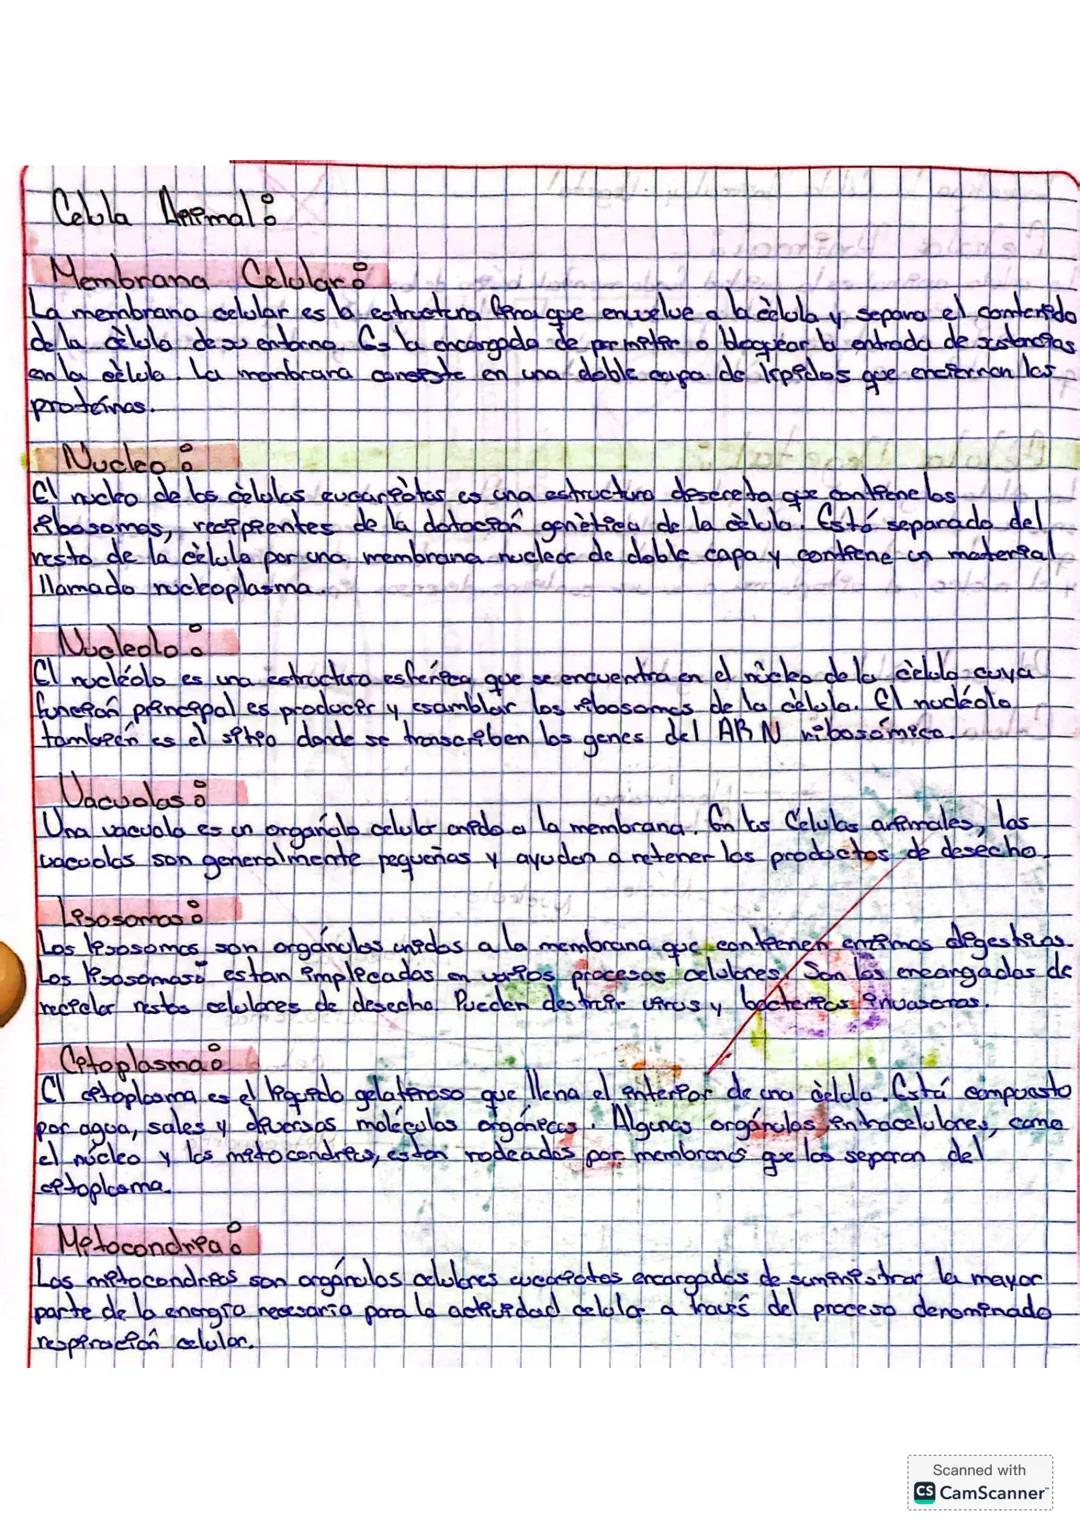 Celula Animal:
Membrana Celular:
La membrana celular es la estructura fina que envuelve a la cèlula y separa el contenido
de la cèlula de su entorno. Es la encargada de permitir o bloquear la entrada de sustancias
en la cèlula. La membrana consiste en una doble capa de lípidos que encierran las
proteínas.
Nucleo:
El nucleo de las cèlulas eucariòtas es una estructura descreta que contiene los
ribosomas, recipientes de la dotación genètica de la cèlula. Está separado del
resto de la cèlula por una membrana nuclear de doble capa y contiene un material
llamado nucleoplasma.
Nucleolo:
El nucléolo es una estructura esfèrica que se encuentra en el núcleo de la cèlula cuya
función principal es producir y esamblar los ribosomas de la cèlula. El nucléolo
también es el sitio donde se transcriben los genes del ARN ribosómico.
Vacuolas:
Una vacuola es un organúlo celular unido a la membrana. En las Células animales, las
vacuolas son generalmente pequeñas y ayudan a retener los productos de desecho.
Lisosomas:
Los lisosomas son orgánulos unidos a la membrana que contienen enzimas digestivas.
Los lisosomas estan implicadas en varios procesos celulares. Son los encargados de
reciclar restos celulares de desecho. Pueden destruir virus y bacterias invasoras.
Citoplasma:
El citoplasma es el líquido gelatinoso que llena el interior de una cèlula. Está compuesto
por agua, sales y diversas moléculas orgánicas. Algunos orgánulos intracelulares, como
el núcleo y las mitocondrias, estan rodeados por membranas que los separan del
citoplasma.
Mitocondria:
Las mitocondrias son orgánulos celulares eucariotas encargados de suministrar la mayor
parte de la energía necesaria para la actividad celular a través del proceso denominado
respiración celular.
Scanned with
CS CamScanner